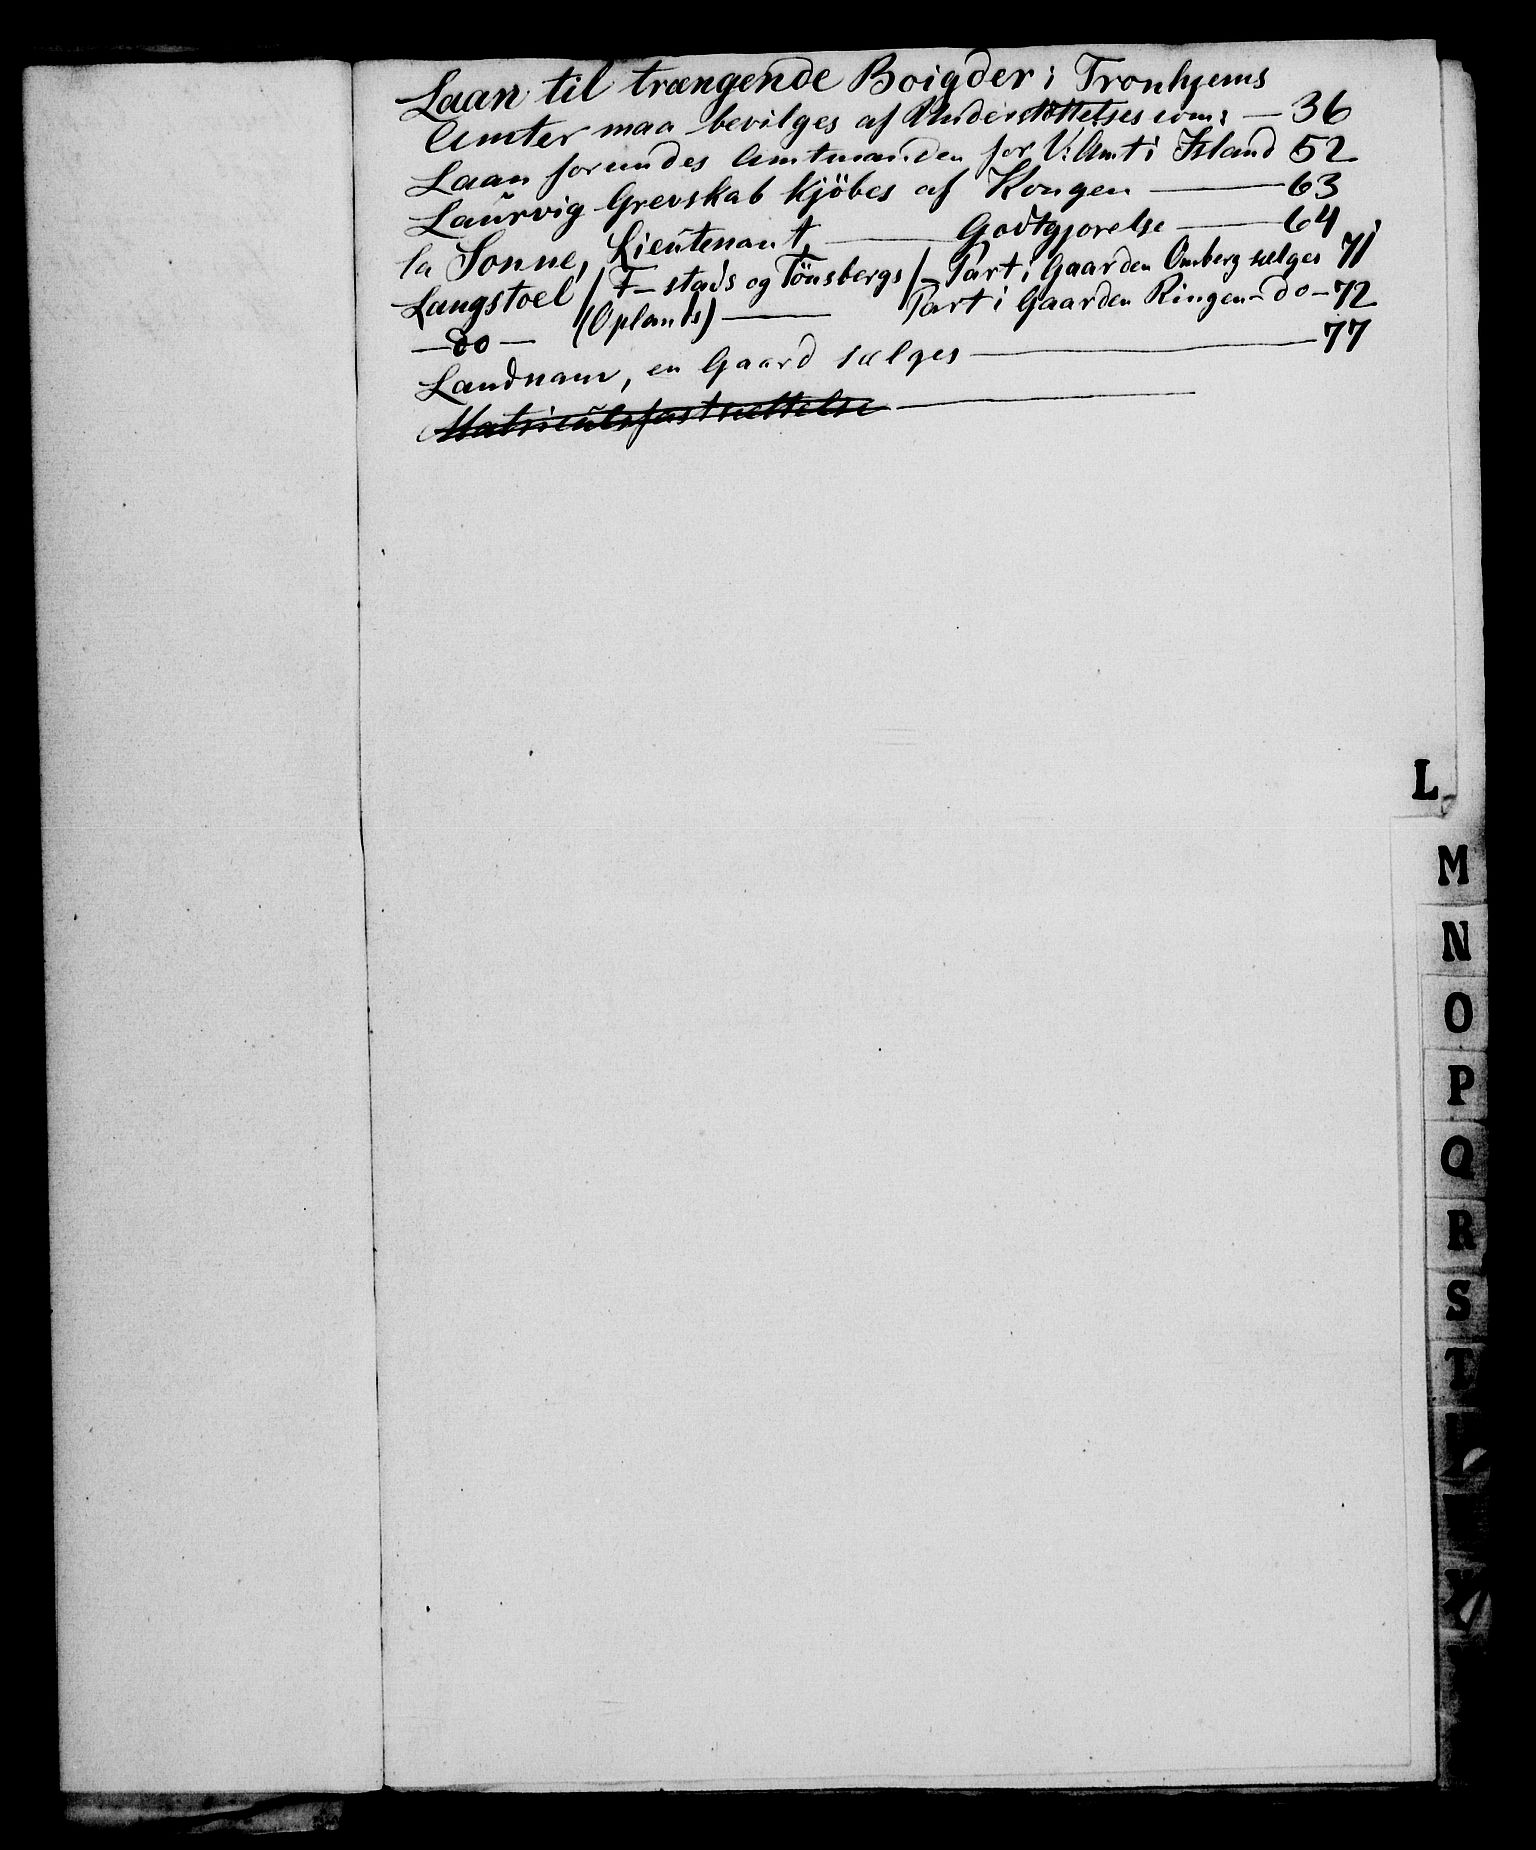 Laan til trængende Boigder i Tronhjems
Amter maa bevilges af Understöttelses com: — 36
Laan forundes Amtmanden for V: Amt i Island 52
Laurvig Grevskab kjöbes af Kongen — 63
la Sonne, Lieutenant, — Godtgjorelse — 64
Langstoel / F— stads og Tönsbergs / — Part i Gaarden Omberg sælges 71
— do — (Oplands) — Part i Gaarden Ringen — do — 72
Landnam, en Gaard sælges — 77
Matriculsfastsættelse —
L
M
N
O
P
Q
R
S
T